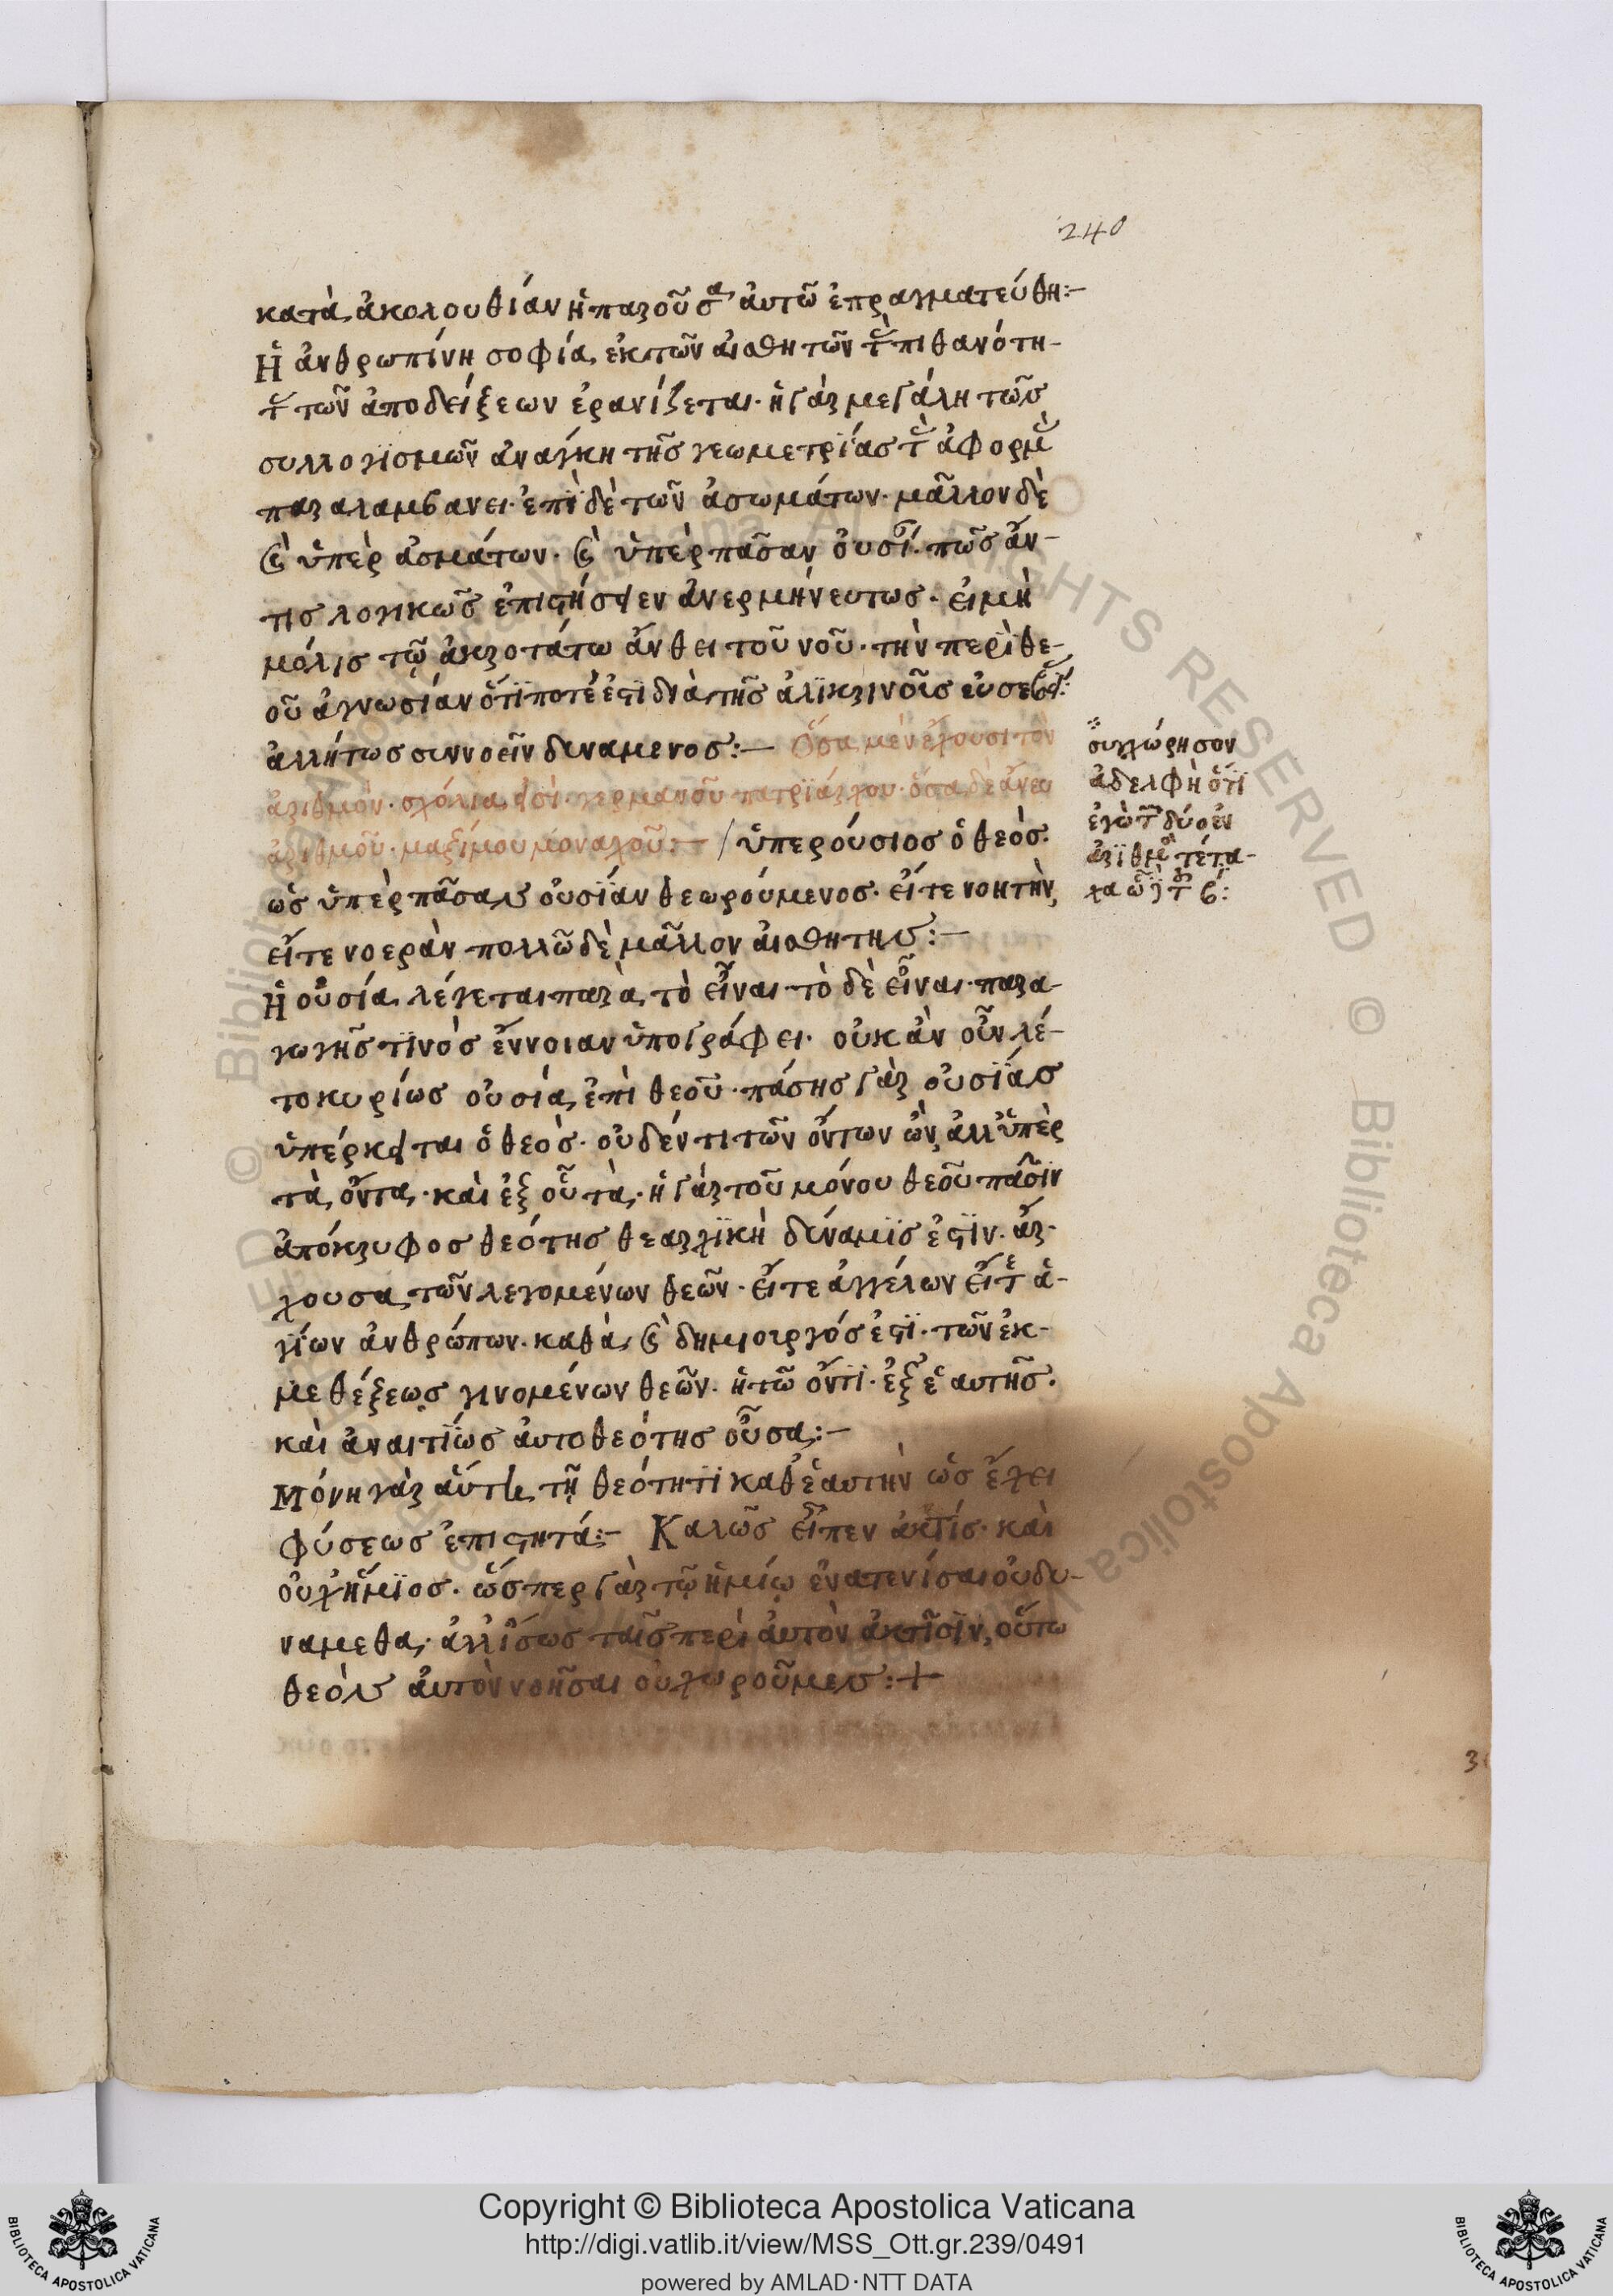 240
κατὰ ἀκολουθίαν ἡ παροῦσα ἀυτῶ ἐπραγματεύθη:-
Ἡ ἀνθρωπίνη σοφία ἐκ τῶν ἀισθητῶν τ̀ πιθανότη-
τ̀ τῶν ἀποδείξεων ἐρανίζεται· ἡ γὰρ μεγάλη τῶσ
συλλογϊσμῶν ἀνάγκη τῆσ γεωμετρϊάσ τ̀ ἀφορμ̀
παραλαμβανει· ἐπϊ δὲ τῶν ἀσωμάτων· μᾶλλον δὲ
ϗ ὑπὲρ ἀσμάτων· ϗ ὑπὲρ πᾶσαν ὀυσΐ· πῶσ ἄν-
τισ λογικῶσ ἐπιστήσειεν ἀνερμήνευτωσ· εἰ μὴ
μόλισ τῷ ἀκροτάτω ἄνθει τοῦ νοῦ· τὴν περὶ θε-
οῦ ἀγνωσίαν ὅτϊ ποτέ ἐστϊ διὰ τῆσ ἀλϊκρινοῖσ ἐυσεβεί:
ἀλλήτωσ συννοεῖν δυναμενοσ:— Ὅσα μὲν ἔχουσι τὸν
ἀριθμὸν· σχόλια εἰσὶ· γερμανοῦ πατρϊάρχου· ὅσα δὲ ἄνευ
ἀριθμοῦ· μαξίμου μοναχοῦ:— / ὑπερούσιοσ ὁ θεὸσ·
ὡσ ὑπὲρ πᾶσαν ὀυσΐαν θεωρούμενοσ· εἴτε νοητὴν,
εἴτε νοερὰν πολλῶ δὲ μᾶλλον ἀισθητην:—
Ἡ οὐσία λέγεται παρὰ τὸ εἶναι· τὸ δὲ εἶναι· παρα-
γωγῆσ τϊνὸσ ἔννοιαν ὑπογράφει· οὐκ ἂν οὖν λέ-
το κυρίωσ οὐσία ἐπὶ θεοῦ· πάσησ γὰρ οὐσΐασ
ὑπέρκειται ὁ θεὸσ· οὐδέν τι τῶν ὄντων ὢν ἀλλ' ὑπὲρ
τὰ ὄντα· καὶ ἐξ οὗ τὰ· ἡ γὰρ τοῦ μόνου θεοῦ πᾶσϊν
ἀπόκρυφοσ θεότησ θεαρχϊκὴ δύναμϊσ ἐστϊν· ἄρ-
χουσα τῶν λεγομένων θεῶν· εἴτε ἀγγέλων εἴτ̀ ἁ-
γΐων ἀνθρώπων· καθὰ ϗ δημιουργόσ ἐστϊ· τῶν ἐκ
μεθέξεωσ γινομένων θεῶν· ἡ τῶ ὄντϊ· ἐξ ἑαυτῆσ·
καὶ ἀναιτΐωσ ἀυτοθεότησ οὖσα:—
Μόνη γὰρ ἀύτη τῆ θεότητϊ καθ' ἑαυτὴν ὡσ ἔχει
φύσεωσ ἐπιστητά:- Καλῶσ εἶπεν ἀκτίσ· καὶ
οὐχ ἥλϊοσ· ὥσπερ γὰρ τῷ ἡλίῳ ἐνατενίσαι οὐδυ-
ναμεθα, ἀλλ' ἴσωσ ταῖσ περὶ ἀυτὸν ἀκτῖσϊν, οὕτω
θεὸν ἀυτὸν νοῆσαι οὐχωροῦμεν:+
συγχώρησον
ἀδελφὴ ὅτϊ
ἐγὼ τ̀ δύο ἐν
ἀρϊθμ̀ τέτα-
χα
Copyright © Biblioteca Apostolica Vaticana
http://digi.vatlib.it/view/MSS_Ott.gr.239/0491
powered by AMLAD·NTT DATA
BIBLIOTECA APOSTOLICA VATICANA
BIBLIOTECA APOSTOLICA VATICANA